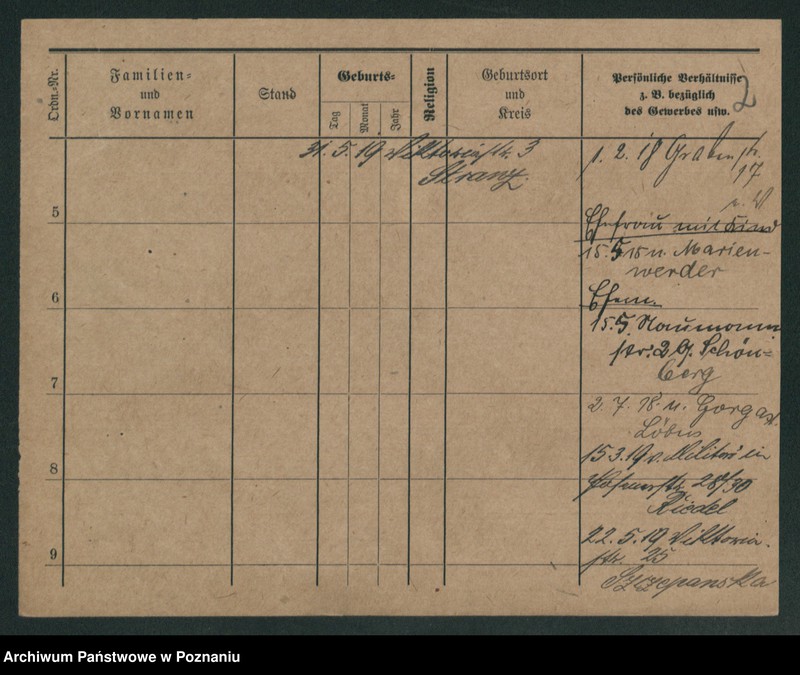 Ordn.-Nr.
Familien-
und
Vornamen
Stand
Geburts-
Tag
Monat
Jahr
Religion
Geburtsort
und
Kreis
Persönliche Verhältnisse
z. B. bezüglich
des Gewerbes usw.
2
31. 5. 19 Viktoriastr. 3
Stranz.
1. 2. 18 Grabenstr.
17
5
Ehefrau mit Kind
15. 5 15 n. Marien-
werder
6
Ehem.
15. 5. Naumann
str. 2 Schön-
berg
7
2. 7. 18. n. Gorgast
Löbus
15 3. 19 v. Militär in
8
28/30
Riedel
22. 5. 19 Viktoria-
9
str. 25
Szczepanska
Archiwum Państwowe w Poznaniu